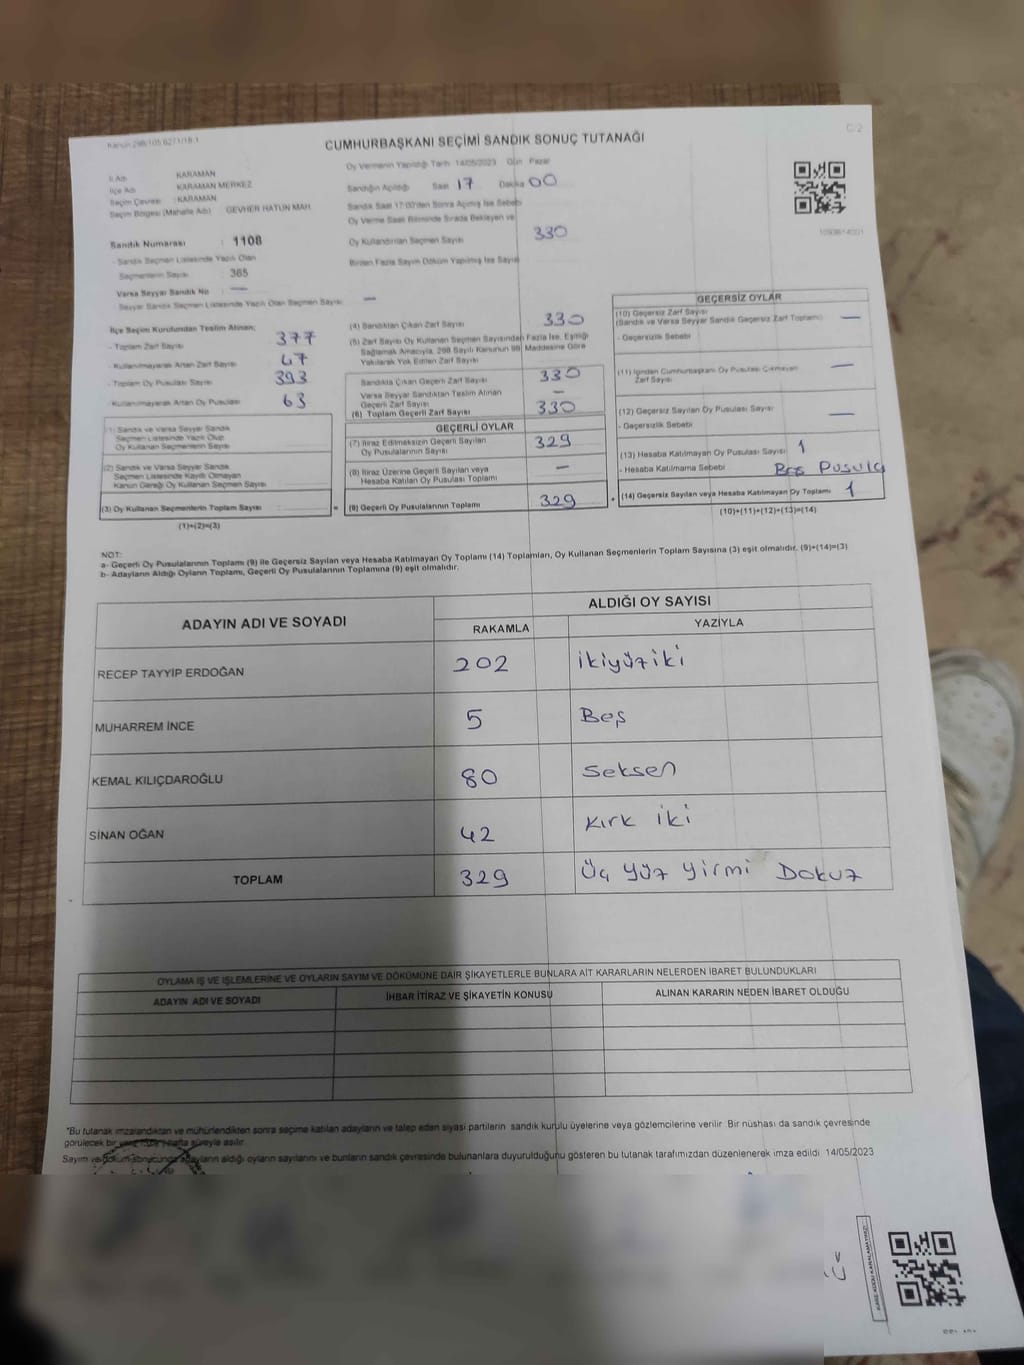 Kanun 298/105 627/1/18-1
C/2
CUMHURBAŞKANI SEÇİMİ SANDIK SONUÇ TUTANAĞI
İl Adı : KARAMAN
İlçe Adı : KARAMAN MERKEZ
Seçim Çevresi : KARAMAN
Seçim Bölgesi (Mahalle Adı) : GEVHER HATUN MAH.
Oy Vermenin Yapıldığı Tarih 14/05/2023 Gün Pazar
Sandığın Açıldığı Saat 17 Dakika 00
Sandık Saat 17:00'den Sonra Açılmış İse Sebebi
Oy Verme Saat Bitiminde Sırada Bekleyen ve
Oy Kullandırılan Seçmen Sayısı 330
Birden Fazla Sayım Döküm Yapılmış İse Sayısı
Sandık Numarası : 1108
- Sandık Seçmen Listesinde Yazılı Olan
Seçmenlerin Sayısı : 365
Varsa Seyyar Sandık No : —
- Seyyar Sandık Seçmen Listesinde Yazılı Olan Seçmen Sayısı: —
İlçe Seçim Kurulundan Teslim Alınan;
- Toplam Zarf Sayısı 377
- Kullanılmayarak Artan Zarf Sayısı 47
- Toplam Oy Pusulası Sayısı 393
- Kullanılmayarak Artan Oy Pusulası 63
(1) Sandık ve Varsa Seyyar Sandık
Seçmen Listesinde Yazılı Olup
Oy Kullanan Seçmenlerin Sayısı
(2) Sandık ve Varsa Seyyar Sandık
Seçmen Listesinde Kayıtlı Olmayan
Kanun Gereği Oy Kullanan Seçmen Sayısı
(3) Oy Kullanan Seçmenlerin Toplam Sayısı =
(1)+(2)=(3)
(4) Sandıktan Çıkan Zarf Sayısı 330
(5) Zarf Sayısı Oy Kullanan Seçmen Sayısından Fazla İse, Eşitliği
Sağlamak Amacıyla, 298 Sayılı Kanunun 98. Maddesine Göre
Yakılarak Yok Edilen Zarf Sayısı
Sandıkta Çıkan Geçerli Zarf Sayısı 330
Varsa Seyyar Sandıktan Teslim Alınan
Geçerli Zarf Sayısı —
(6) Toplam Geçerli Zarf Sayısı 330
GEÇERLİ OYLAR
(7) İtiraz Edilmeksizin Geçerli Sayılan
Oy Pusulalarının Sayısı 329
(8) İtiraz Üzerine Geçerli Sayılan veya
Hesaba Katılan Oy Pusulası Toplamı —
(9) Geçerli Oy Pusulalarının Toplamı 329 +
GEÇERSİZ OYLAR
(10) Geçersiz Zarf Sayısı
(Sandık ve Varsa Seyyar Sandık Geçersiz Zarf Toplamı) —
- Geçersizlik Sebebi
(11) İçinden Cumhurbaşkanı Oy Pusulası Çıkmayan
Zarf Sayısı —
(12) Geçersiz Sayılan Oy Pusulası Sayısı —
- Geçersizlik Sebebi
(13) Hesaba Katılmayan Oy Pusulası Sayısı 1
- Hesaba Katılmama Sebebi Boş Pusula
(14) Geçersiz Sayılan veya Hesaba Katılmayan Oy Toplamı 1
(10)+(11)+(12)+(13)=(14)
NOT:
a- Geçerli Oy Pusulalarının Toplamı (9) ile Geçersiz Sayılan veya Hesaba Katılmayan Oy Toplamı (14) Toplamları, Oy Kullanan Seçmenlerin Toplam Sayısına (3) eşit olmalıdır. (9)+(14)=(3)
b- Adayların Aldığı Oyların Toplamı, Geçerli Oy Pusulalarının Toplamına (9) eşit olmalıdır.
ADAYIN ADI VE SOYADI
ALDIĞI OY SAYISI
RAKAMLA YAZIYLA
RECEP TAYYİP ERDOĞAN 202 ikiyüziki
MUHARREM İNCE 5 Beş
KEMAL KILIÇDAROĞLU 80 Seksen
SİNAN OĞAN 42 Kırk iki
TOPLAM 329 Üç yüz yirmi Dokuz
OYLAMA İŞ VE İŞLEMLERİNE VE OYLARIN SAYIM VE DÖKÜMÜNE DAİR ŞİKAYETLERLE BUNLARA AİT KARARLARIN NELERDEN İBARET BULUNDUKLARI
ADAYIN ADI VE SOYADI İHBAR İTİRAZ VE ŞİKAYETİN KONUSU ALINAN KARARIN NEDEN İBARET OLDUĞU
*Bu tutanak imzalandıktan ve mühürlendikten sonra seçime katılan adayların ve talep eden siyasi partilerin sandık kurulu üyelerine veya gözlemcilerine verilir. Bir nüshası da sandık çevresinde
görülecek bir yere hafta süreyle asılır.
Sayım ve döküm sonucunda adayların aldığı oyların sayılarını ve bunların sandık çevresinde bulunanlara duyurulduğunu gösteren bu tutanak tarafımızdan düzenlenerek imza edildi. 14/05/2023